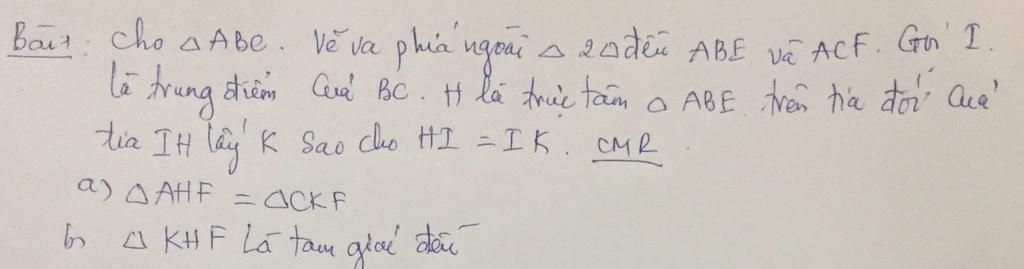 Bài 1: Cho △ABC. Vẽ va phiá ngoài △ 2△đều ABE và ACF. Gọi I.
là trung điểm Quả BC. H là trực tâm △ ABE. trên tia đối Quả
tia IH lấy K sao cho HI = IK. CMR.
a) △AHF = △CKF
b, △ KHF Là tam giác đều